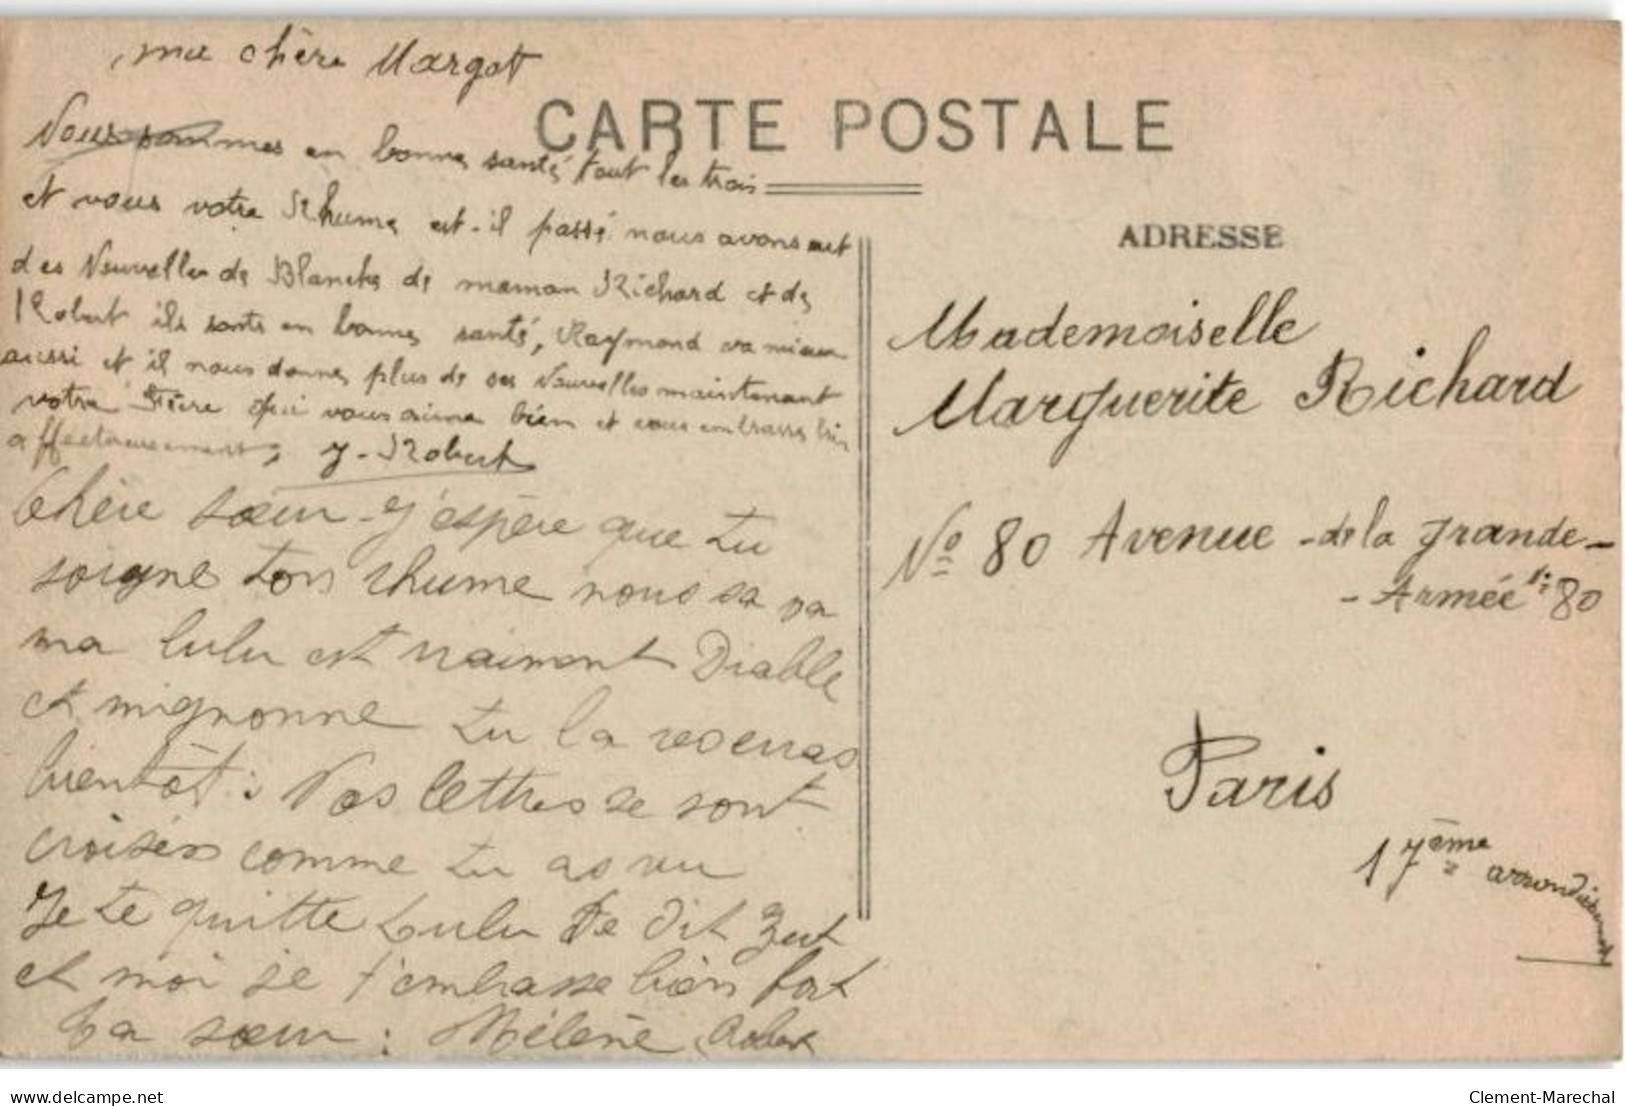 ma chère Margot
CARTE POSTALE
Nous sommes en bonne santé tout les trois
et vous votre Rhume est-il passé nous avons eut
des Nouvelles de Blanche de maman Richard et de
Robert ils sonts en bonne santé, Raymond va mieux
aussi et il nous donne plus de ses Nouvelles maintenant
votre Frère qui vous aime bien et vous embrasse bien
affectueusement, J-Robert
Chère sœur - J'espère que tu
soigne ton rhume nous sa va
ma lulu est vraiment Diable
et mignonne tu la reverras
bientôt : Nos lettres se sont
croisées comme tu as vu
Je te quitte Lulu te dit Zut
et moi je t'embrasse bien fort
Ta sœur : Hélène Robert
ADRESSE
Mademoiselle
Marguerite Richard
No 80 Avenue - de la Grande-
- Armée 80
Paris
17ème arrondissement
delcampe.net
Clement-Marechal